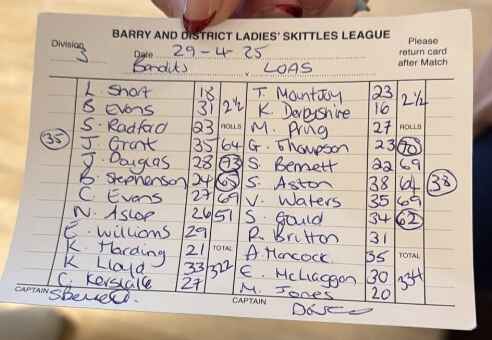 BARRY AND DISTRICT LADIES' SKITTLES LEAGUE
Please return card after Match
Division 3 Date 29-4-25
Bandits v LOAS
L. Short 18 T. Mountjoy 23
B Evans 31 2½ K. Derbyshire 16 2½
S. Radford 23 ROLLS M. Pring 27 ROLLS
35 J. Grant 35 64 G. Thompson 23 70
J. Douglas 28 73 S. Bennett 22 69
B. Stephenson 24 65 S. Aston 38 64 38
C. Evans 27 69 V. Waters 35 69
N. Aslop 26 51 S. Gould 34 62
E. Williams 29 R. Britton 31
K. Harding 21 TOTAL A. Hancock 35 TOTAL
K Lloyd 33 322 E. McLaggon 30 334
C. 27 M. Jones 20
CAPTAIN CAPTAIN